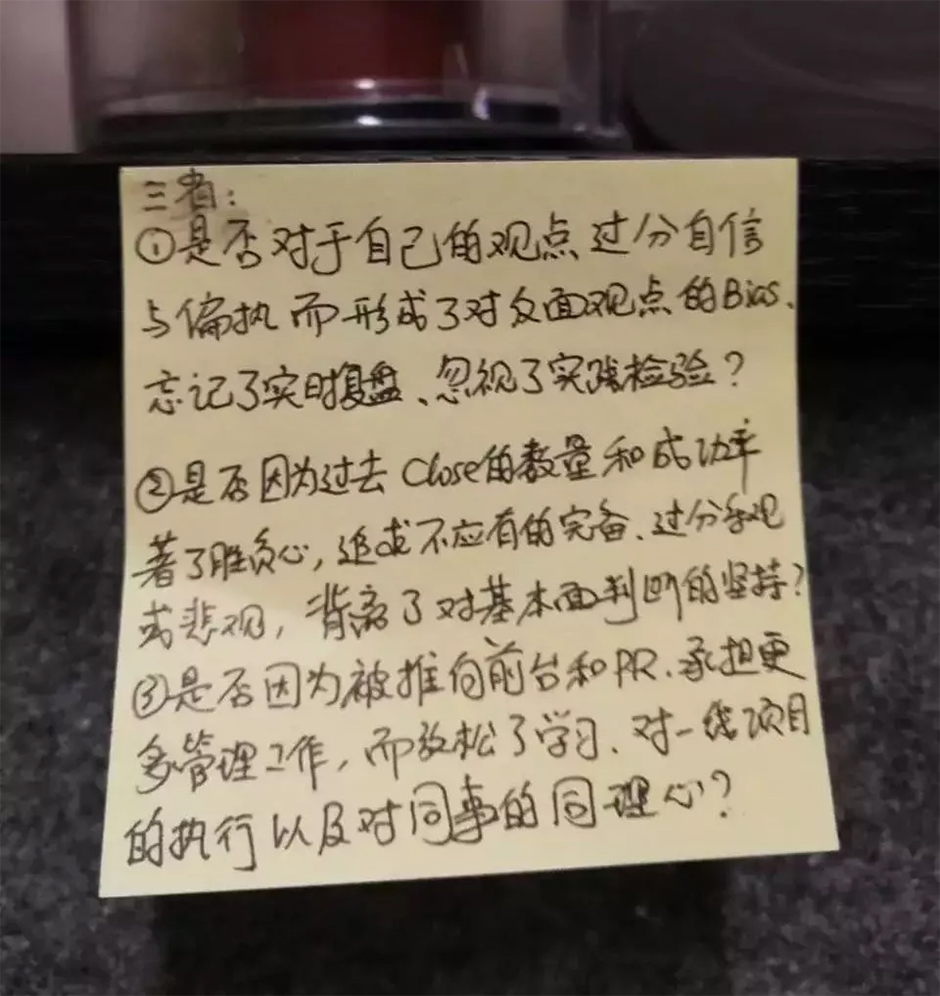 三省：
①是否对于自己的观点过分自信
与偏执而形成了对反面观点的Bias、
忘记了实时复盘、忽视了实践检验？
②是否因为过去Close的数量和成功率
著了胜负心，追求不应有的完备、过分乐观
或悲观，背离了对基本面判断的坚持？
③是否因为被推向前台和PR、承担更
多管理工作，而放松了学习、对一线项目
的执行以及对同事的同理心？